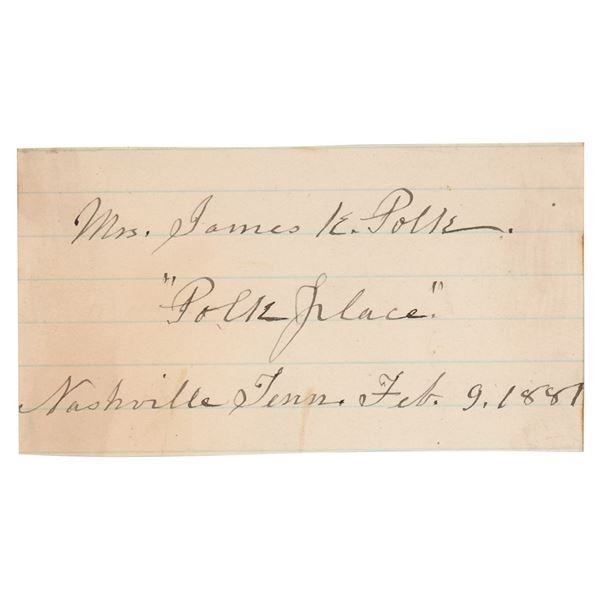 Mrs. James K. Polk.
"Polk place".
Nashville Tenn. Feb. 9. 1881